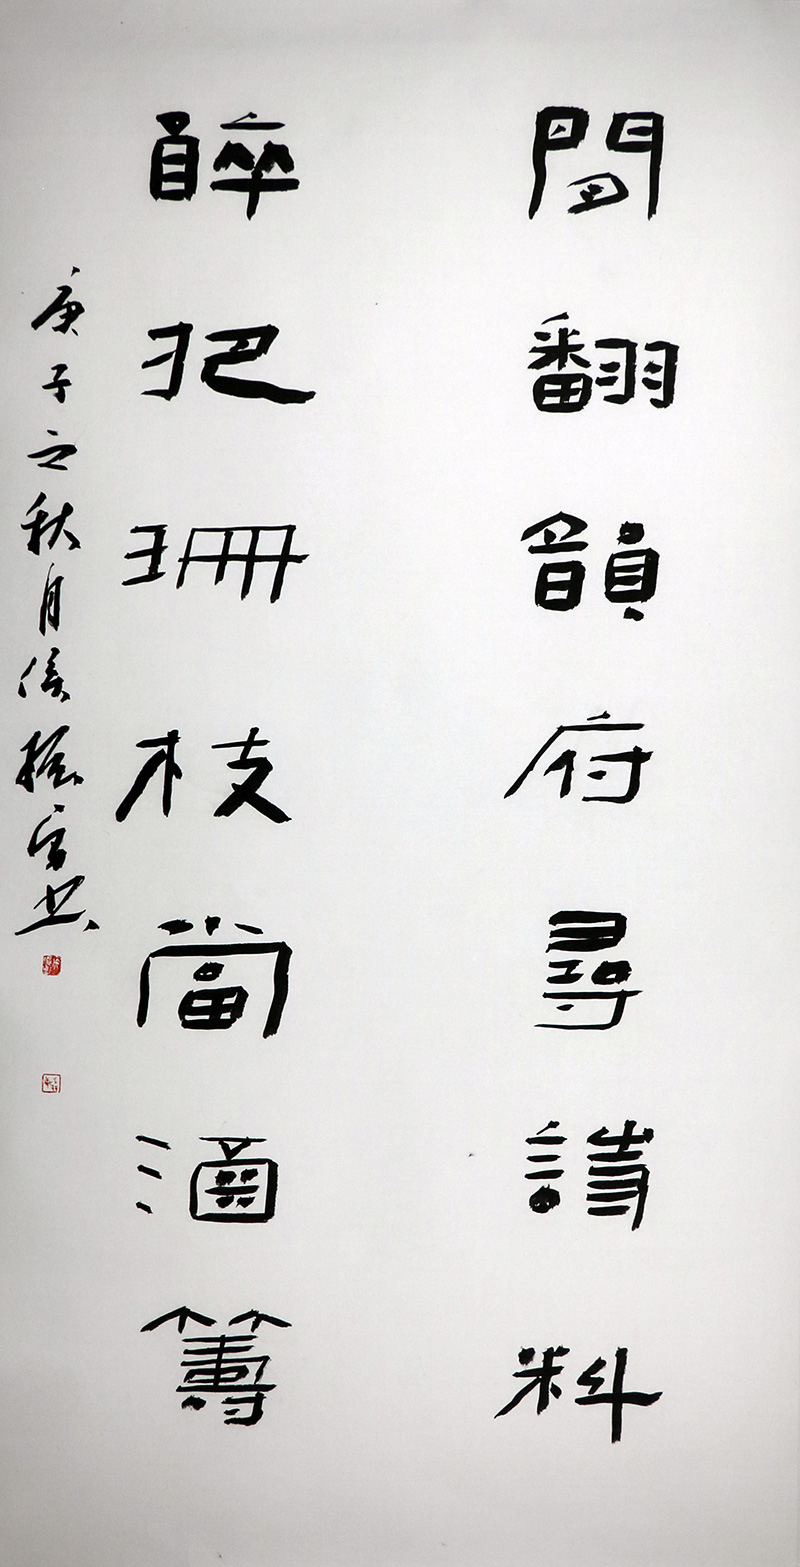 閒翻韻府尋詩料
醉把珊枝當酒籌
庚子之秋月侯 书